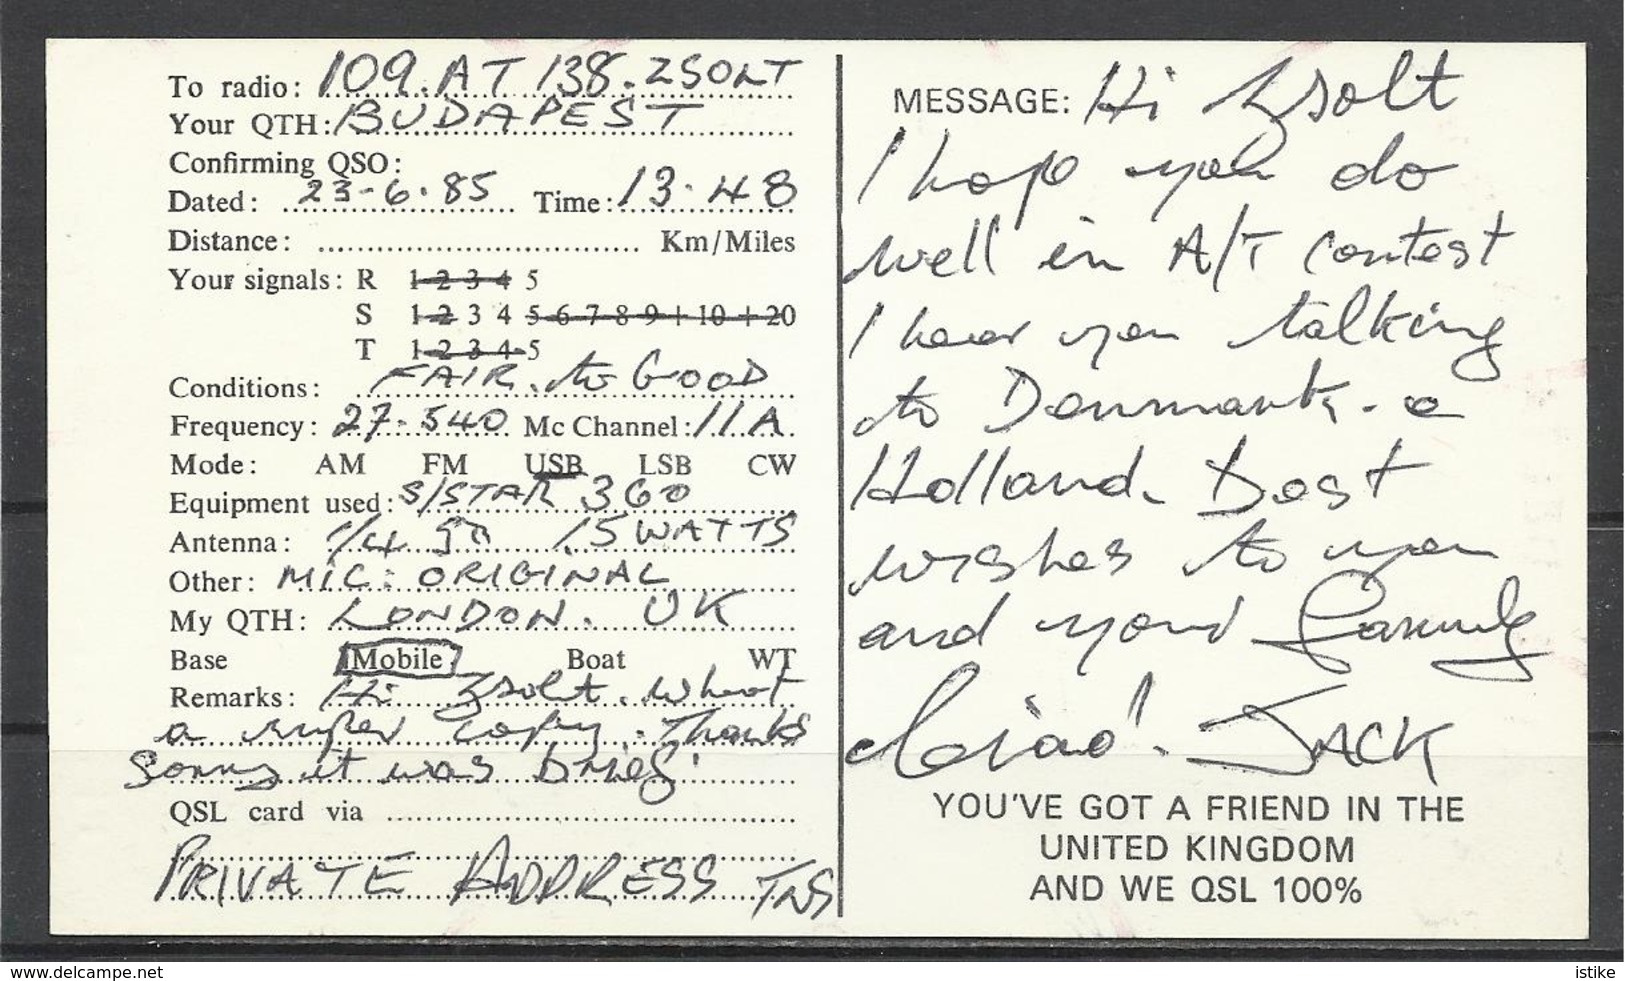 To radio: 109.AT 138. ZSOLT
Your QTH: BUDAPEST
Confirming QSO:
Dated: 23-6.85 Time: 13.48
Distance: Km/Miles
Your signals: R 1 2 3 4 5
S 1 2 3 4 5 6 7 8 9 + 10 + 20
T 1 2 3 4 5
Conditions: FAIR. to GOOD
Frequency: 27.540 Mc Channel: 11A.
Mode: AM FM USB LSB CW
Equipment used: S/STAR 360
Antenna: 1/4 15 WATTS
Other: MIC: ORIGINAL
My QTH: LONDON. UK
Base Mobile Boat WT
Remarks: Hi Zsolt. What
a super copy. Thanks
Sorry it was brief
QSL card via
PRIVATE ADDRESS TNS
MESSAGE: Hi Zsolt
I hope you do
well in A/T contest
I hear you talking
to Denmark. e
Holland. Best
wishes to you
and your family
Ciao! JACK
YOU'VE GOT A FRIEND IN THE
UNITED KINGDOM
AND WE QSL 100%
www.delcampe.net istike